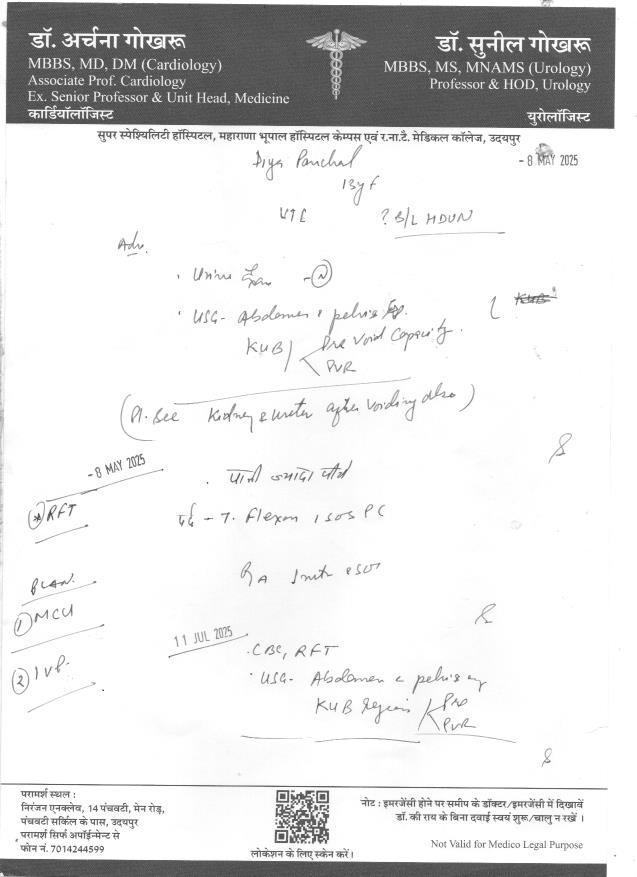 डॉ. अर्चना गोखरू
MBBS, MD, DM (Cardiology)
Associate Prof. Cardiology
Ex. Senior Professor & Unit Head, Medicine
कार्डियॉलॉजिस्ट
डॉ. सुनील गोखरू
MBBS, MS, MNAMS (Urology)
Professor & HOD, Urology
युरोलॉजिस्ट
सुपर स्पेश्यिलिटी हॉस्पिटल, महाराणा भूपाल हॉस्पिटल केम्पस एवं र.ना.टै. मेडिकल कॉलेज, उदयपुर
Diya Panchal
- 8 MAY 2025
13y F
UTI ? B/L HDUN
Adv.
. Urine - (N)
. USG- Abdomen & pelvis
KUB Pre Void Capacity.
PVR
(Pl. See Kidney & ureter after voiding also)
- 8 MAY 2025
. पानी ज्यादा पीये
RFT
दर्द - T. Flexon 1 SOS PC
PLAN.
① MCU
② IVP.
11 JUL 2025
. CBC, RFT
. USG- Abdomen & pelvis
KUB region Pre
PVR
परामर्श स्थल :
निरंजन एनक्लेव, 14 पंचवटी, मेन रोड़,
पंचवटी सर्किल के पास, उदयपुर
परामर्श सिर्फ अपॉईन्मेन्ट से
फोन नं. 7014244599
लोकेशन के लिए स्केन करें।
नोट : इमरजेंसी होने पर समीप के डॉक्टर/इमरजेंसी में दिखावें
डॉ. की राय के बिना दवाई स्वयं शुरू/चालु न रखें ।
Not Valid for Medico Legal Purpose